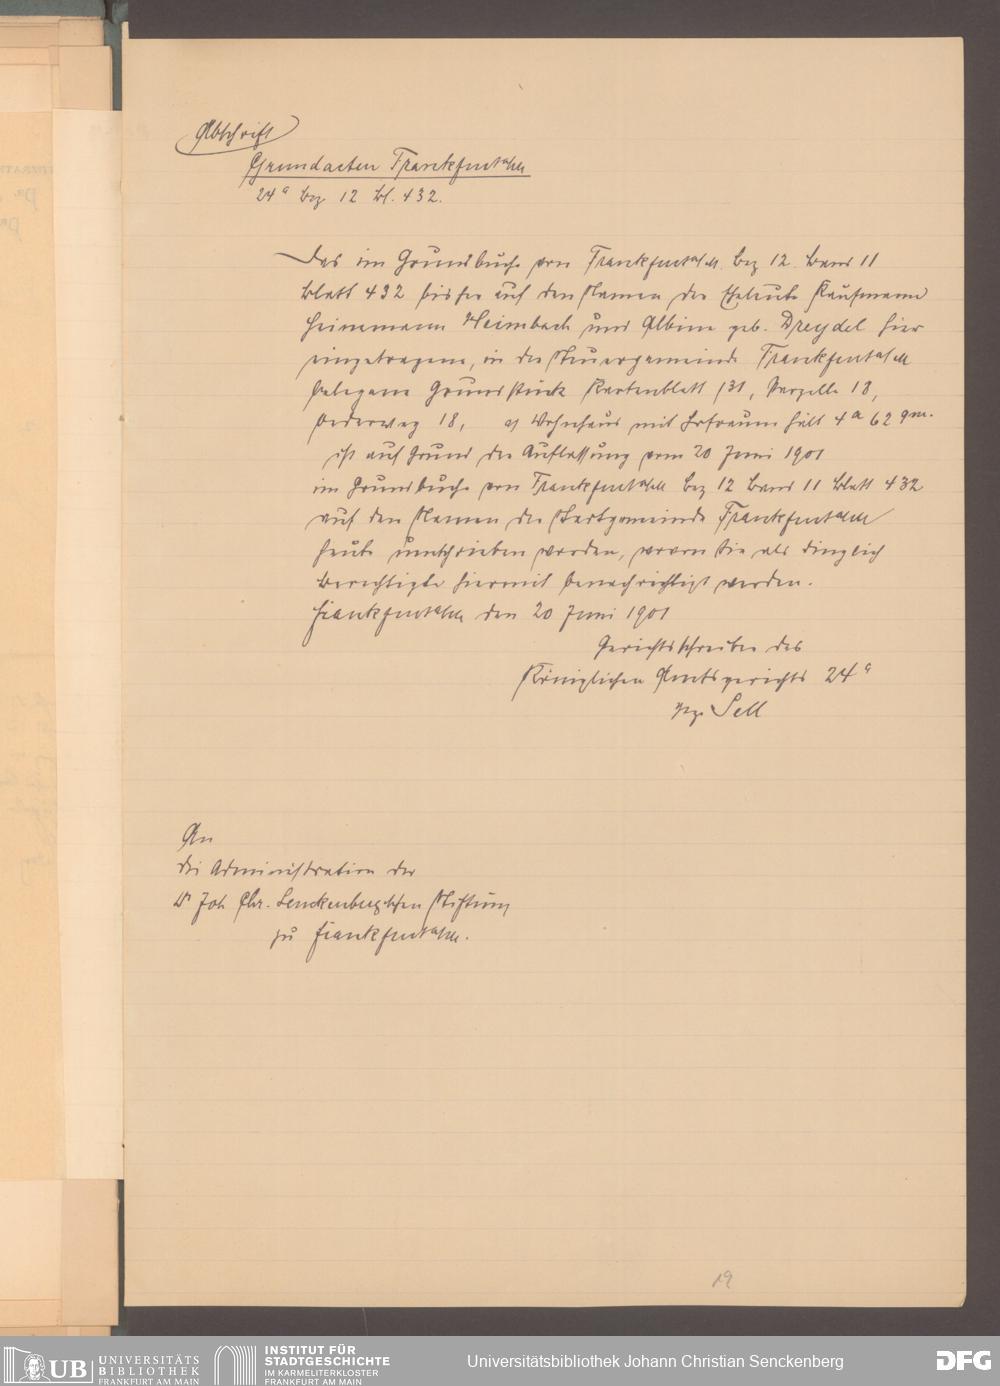 Abschrift
Grundacten Frankfurt a/M
24ª Bez 12 Bl. 432.
Das im Grundbuche von Frankfurt a/M. Bez 12. Band 11
Blatt 432 bisher auf den Namen der Eheleute Kaufmann
Heinemann Heimbach und Albine geb. Dreydel hier
eingetragene, in der Steuergemeinde Frankfurt a/M
belegene Grundstück Kartenblatt 131, Parzelle 18,
Oederweg 18, a) Wohnhaus mit Hofraum hält 4 a 62 qm.
ist auf Grund der Auflassung vom 20 Juni 1901
im Grundbuche von Frankfurt a/M Bez 12 Band 11 Blatt 432
auf den Namen der Stadtgemeinde Frankfurt a/M
heute umschrieben worden, wovon Sie als dinglich
Berechtigte hiermit benachrichtigt werden.
Frankfurt a/M den 20 Juni 1901
Gerichtsschreiber des
Königlichen Amtsgerichts 24ª
gez. Sell
An
die Administration der
Dr Joh Chr. Senckenbergischen Stiftung
zu Frankfurt a/M.
19
UB UNIVERSITÄTS
BIBLIOTHEK
FRANKFURT AM MAIN
INSTITUT FÜR
STADTGESCHICHTE
IM KARMELITERKLOSTER
FRANKFURT AM MAIN
Universitätsbibliothek Johann Christian Senckenberg
DFG